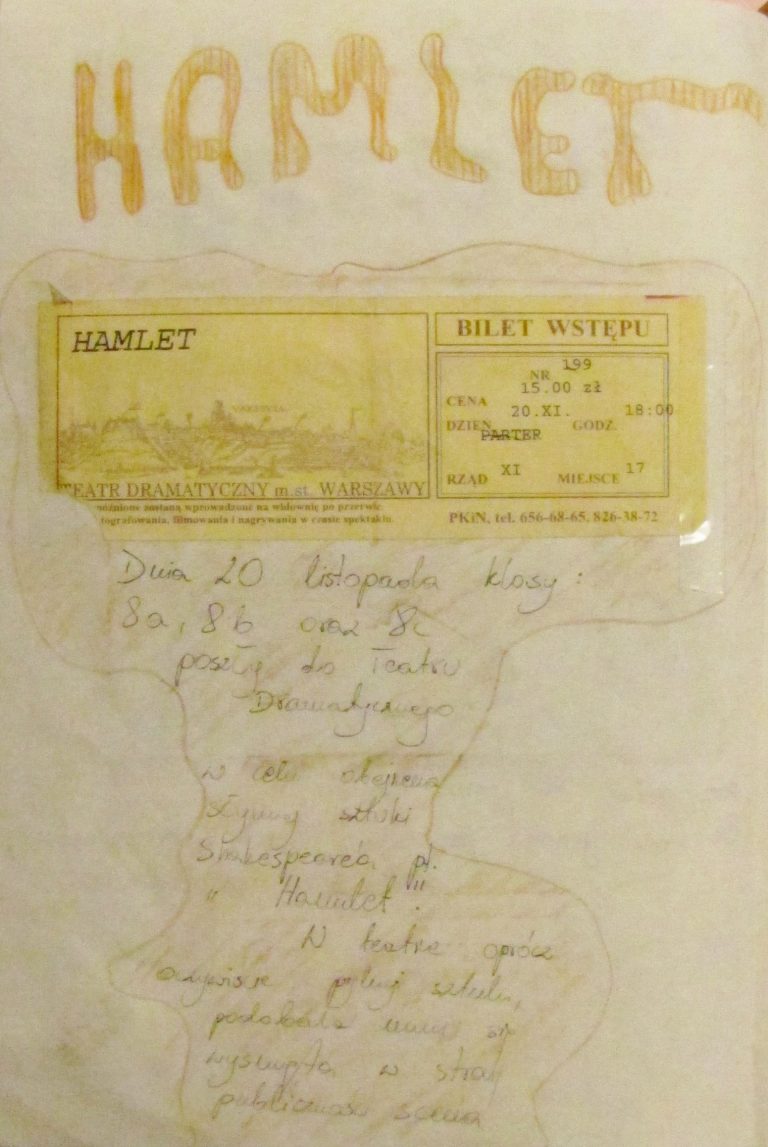 HAMLET
HAMLET
WARSZAWA
TEATR DRAMATYCZNY m.st. WARSZAWY
zostaną wprowadzone na widownię po przerwie
fotografowania, filmowania i nagrywania w czasie spektaklu.
BILET WSTĘPU
NR 199
CENA 15.00 zł
DZIEŃ 20.XI. GODZ. 18:00
PARTER
RZĄD XI MIEJSCE 17
PKiN, tel. 656-68-65, 826-38-72
Dnia 20 listopada klasy:
8a, 8b oraz 8c
poszły do Teatru
Dramatycznego
w celu obejrzenia
słynnej sztuki
Shakespeare'a pt.
"Hamlet".
W teatrze oprócz
oczywiście sztuki,
podobała mi się
wysunięta w stronę
publiczności scena